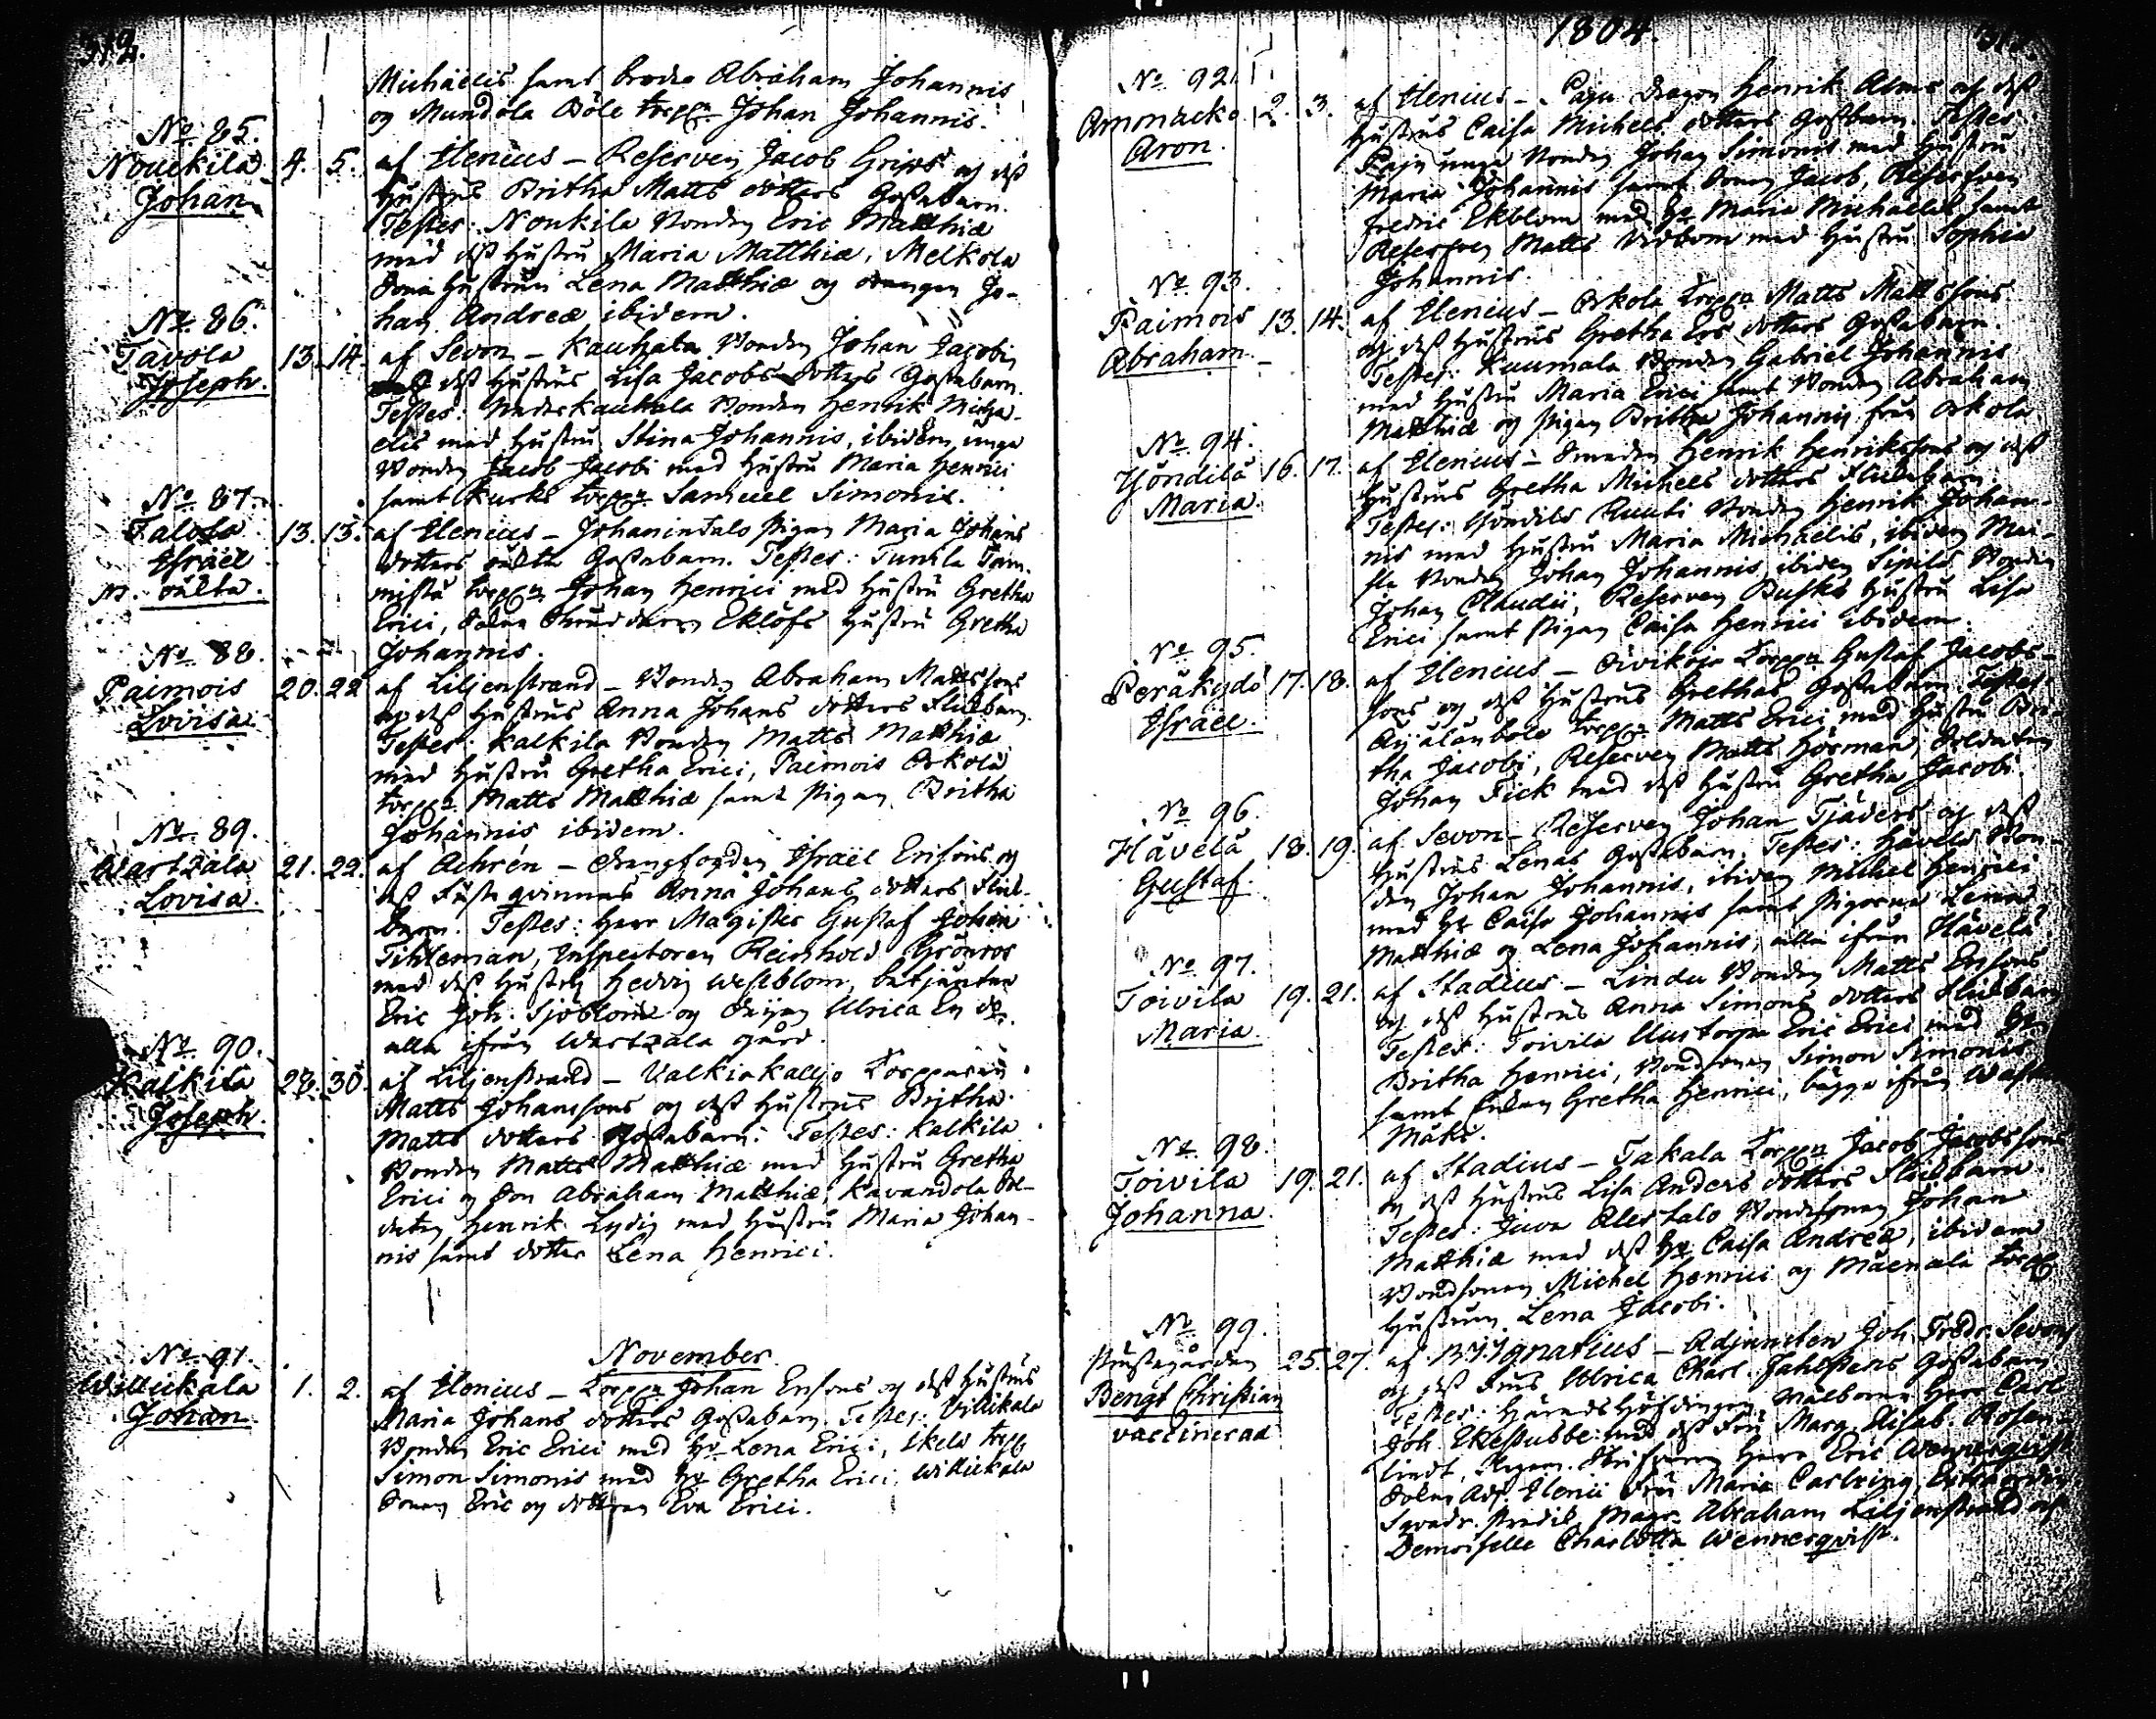 Michaëlis samt broder Abraham Johannis
og Mundola Böle torpn Johan Johannis.
No. 85.
Noukila 4. 5. af Elenius - Reserven Jacob Grips og dess
Johan
hustrus Britha Matts dotters Gossabarn.
Testes: Noukila Bonden Eric Matthiæ
med dess hustru Maria Matthiæ, Melkola
Lena Matthiæ og drengen Jo-
han Andreæ ibidem.
No. 86.
Tavola 13. 14. af Sevon - Kauhala Bonden Johan Jacobi
Joseph.
dess hustrus Lisa Jacobs dotters Gossabarn.
Testes: Kauhala Bonden Henrik Micha-
elis med hustru Stina Johannis, ibidem unga
Bonden Jacob Jacobi med hustru Maria Henrici
samt Kurki torpn Samuel Simonis.
No. 87.
Talola 13. 15. af Elenius - Johanintalo pigan Maria Johans
Israël
dotters oäkta Gossabarn. Testes: Tunkla Tam-
n. oäkta.
mista torpn Johan Henrici med hustru Gretha
Erici, Eklöfs hustru Gretha
Johannis.
No. 88.
Paimois 20. 22. af Liljenstrand - Bonden Abraham Mattssons
Lovisa
og dess hustrus Anna Johans dotters flickbarn.
Testes: Kalkila Bonden Matts Matthiæ
med hustru Gretha Erici, Paimois Orkola
torpn Matts Matthiæ samt pigan Britha
Johannis ibidem.
No. 89.
Wartzala 21. 22. af Achrén - Israël Ersons og
Lovisa.
dess Fästeqvinnas Anna Johans dotters flick-
barn. Testes: Herr Magister Gustaf Johan
Tihleman, Inspectoren Reinhold Grönros
med dess hustru Hedvig Westblom, betjenten
Eric Joh. Sjöblom og Ulrica
alla ifrån Wartzala gård.
No. 90.
Kalkila 28. 30. af Liljenstrand - Valkiakallio Torpparen
Joseph.
Matts Johanssons og dess hustrus Britha
Matts dotters Gossabarn. Testes: Kalkila
Bonden Matts Matthiæ med hustru Gretha
Erici og son Abraham Matthiæ, Kavandola Sol-
daten Henrik Lydig med hustru Maria Johan-
nis samt dotter Lena Henrici.
November.
No. 91.
Willickala 1. 2. af Elenius - Torpn Johan Ersons og dess hustrus
Johan
Maria Johans dotters Gossabarn. Testes: Villikala
Bonden Eric Erici med hu Lena Erici, torp
Simon Simonis med hu Gretha Erici, Willickala
sonen Eric og dottren Eva Erici.
1804.
No. 92.
Ammäcko 2. 3. af Elenius - Paju dragon Henrik Alms og dess
Aron.
hustrus Caisa Michels dotters Gossbarn. Testes
Paju unga Bonden Johan Simonis med hustru
Maria Johannis samt sonen Jacob, Reserfven
Fredric Ekblom med hu Maria Michaelis samt
Reserfven Matts Widbom med hustru Sophia
Johannis.
No. 93.
Paimois 13. 14. af Elenius - Orkola Torpn Matts Mattssons
Abraham.
og dess hustrus Gretha Ers dotters Gossabarn.
Testes: Kuumala Bonden Gabriel Johannis
med hustru Maria Erici samt Bonden Abraham
Matthiæ og pigan Britha Johannis från Orkola
No. 94.
Yöndilä 16. 17. af Elenius - Smeden Henrik Henrikssons og dess
Maria.
hustrus Gretha Michels dotters flickbarn.
Testes: Yöndilä Ruuti Bonden Henrik Johan-
nis med hustru Maria Michaelis, ibidem
Bonden Johan Johannis, ibidem Sipilä Bonden
Johan Claudii, Reserven Busks hustru Lisa
Erici samt pigan Caisa Henrici ibidem.
No. 95.
Peräkydö 17. 18. af Elenius - Oivikoja Torpn Gustaf Jacobs-
Israël.
sons og dess hustrus Grethas Gossabarn. Testes:
Äijälänböle torpn Matts Erici med hustru Bri-
tha Jacobi, Reserven Matts Hörman, Soldaten
Johan Fick med dess hustru Gretha Jacobi.
No. 96.
Hävelä 18. 19. af Sevon - Reserven Johan Tjäders og dess
Gustaf.
hustrus Lenas Gossabarn. Testes: Hävelä Bon-
den Johan Johannis, ibidem Michel Henrici
med hu Caisa Johannis samt pigorna Lena
Matthiæ og Lena Johannis, alla ifrån Hävelä.
No. 97.
Toivila 19. 21. af Stadius - Lindu Bonden Matts Ersons
Maria.
og dess hustrus Anna Simons dotters flickbarn
Testes: Toivila Uustorpa Eric Erici med hu
Britha Henrici, Bondsonen Simon Simonis
samt Enkan Gretha Henrici, bägge ifrån
No. 98.
Toivila 19. 21. af Stadius - Takala Torpn Jacob Jacobssons
Johanna.
og dess hustrus Lisa Anders dotters flickbarn
Testes: Juva Alestalo Bondesonen Johan
Matthiæ med dess hu Caisa Andreæ, ibidem
Bondsonen Michel Henrici og Mäenala torp
hustrun Lena Jacobi.
No. 99.
Prästegården 25. 27. af Ignatius - Adjuncten Joh. Fredr. Sevons
Bengt Christian
og dess Frus Ulrica Charl. Fahlstens Gossabarn
vaccinerad
Testes: Häradshöfdingen välborne Herr Carl
Joh. Ekestubbe med dess Fru Marg. Elisab. Rosen-
lindt, Herr Eric Wennerqvist
Adj. Elenii Fru Maria Carlring, Extraordin.
predik. Magr. Abraham Liljenstrand og
Demoiselle Charlotta Wennerqvist.